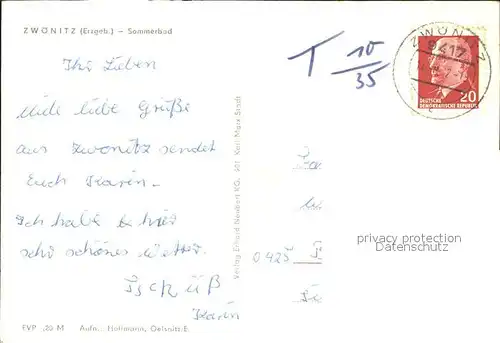 ZWÖNITZ (Erzgeb.) – Sommerbad
T 10
35
ZWÖNITZ
9417
20
DEUTSCHE
DEMOKRATISCHE REPUBLIK
Ihr Lieben
viele liebe Grüße
aus Zwönitz sendet
Euch Karin.
Ich habe hier
sehr schönes Wetter.
Tschüß
Karin
Verlag Erhard Neubert KG, 901 Karl-Marx-Stadt
0425
privacy protection
Datenschutz
EVP -,20 M Aufn.: Hoffmann, Oelsnitz-E.